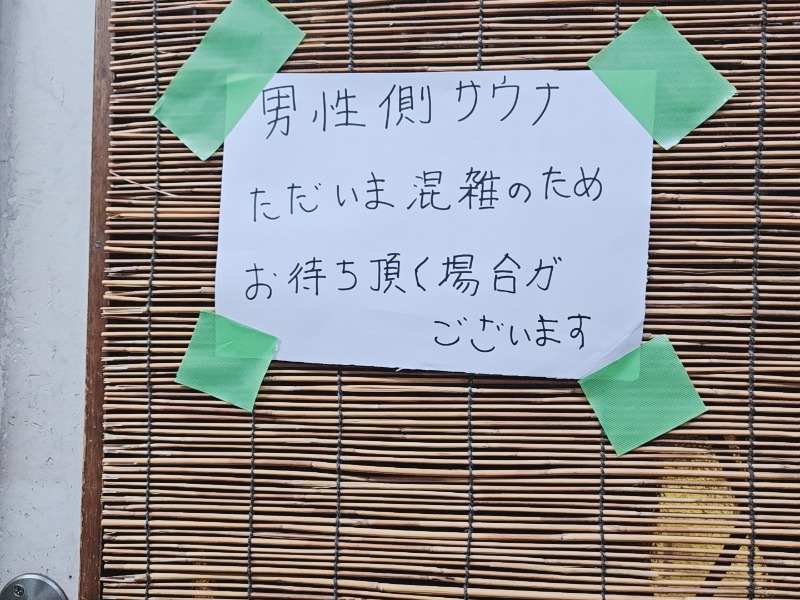 男性側サウナ
ただいま混雑のため
お待ち頂く場合が
ございます